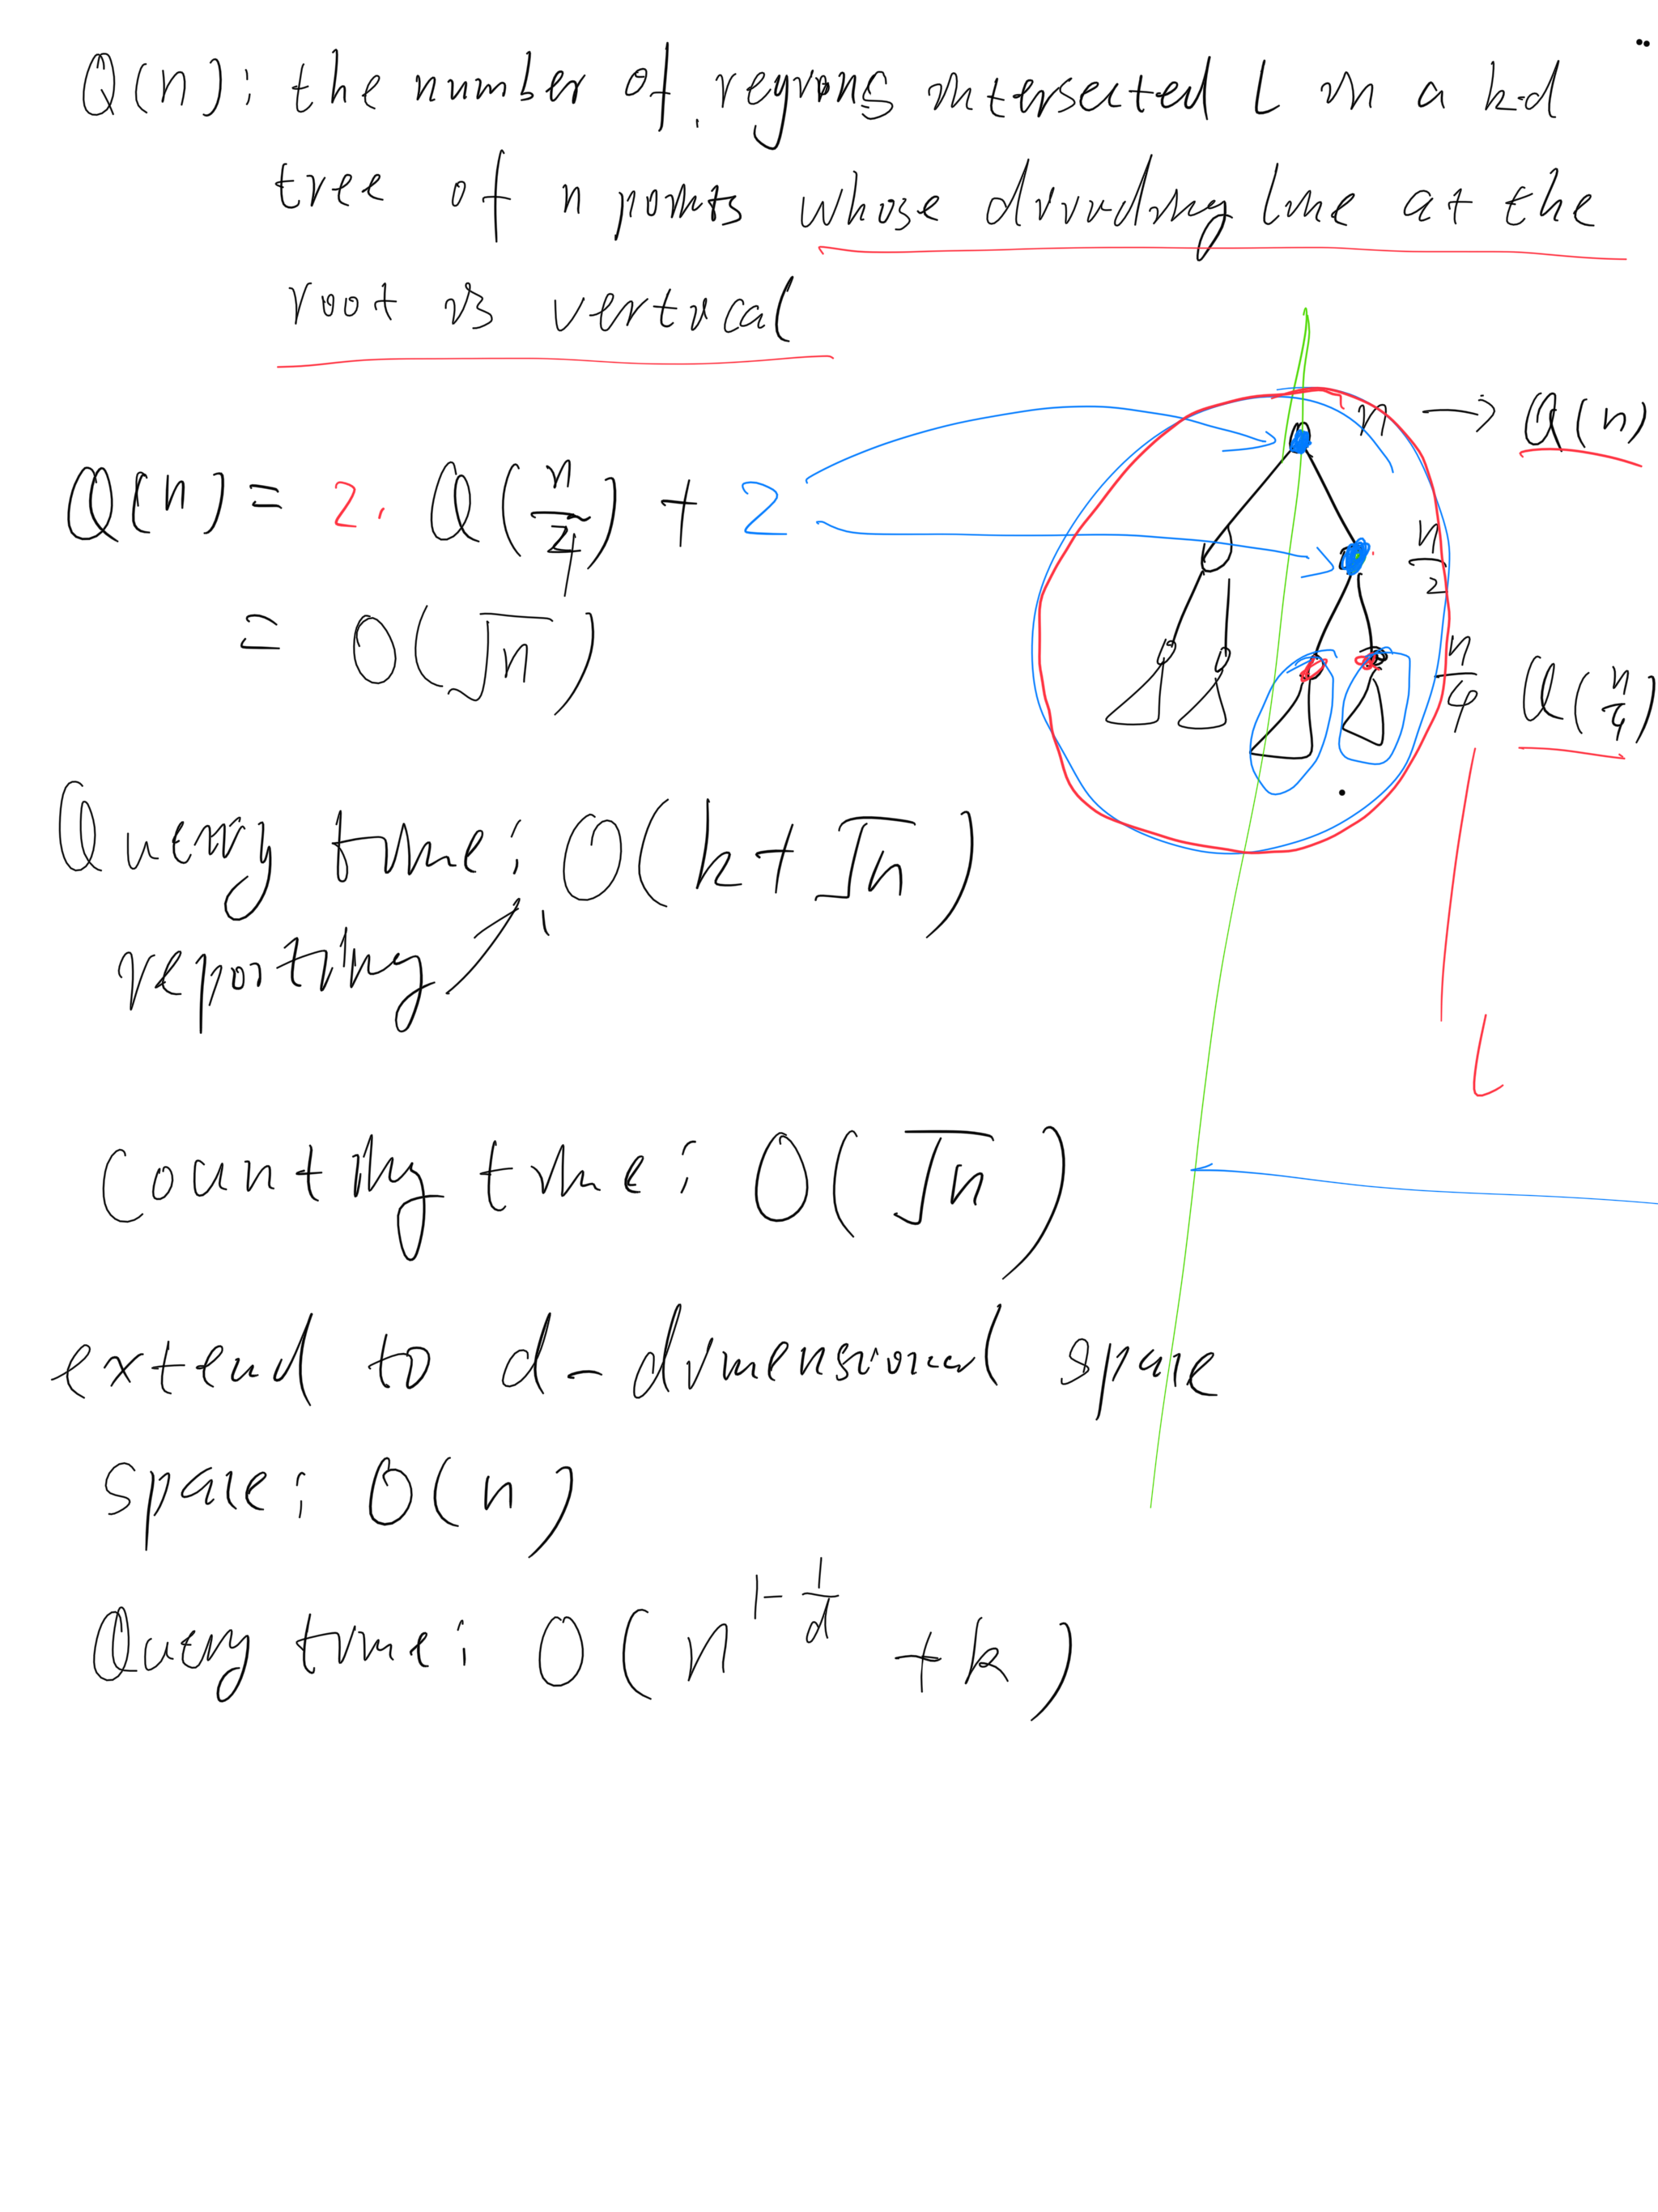 Q(n): the number of regions intersected L in a k-d
tree of n points whose dividing line at the
root is vertical
n → Q(n)
Q(n) = 2. Q(n/4) + 2
n/2
= O(√n)
n/4 Q(n/4)
Query time: O(k+√n)
reporting
L
counting time: O(√n)
extend to d-dimensional space
space: O(n)
Query time: O(n^{1-1/d} + k)